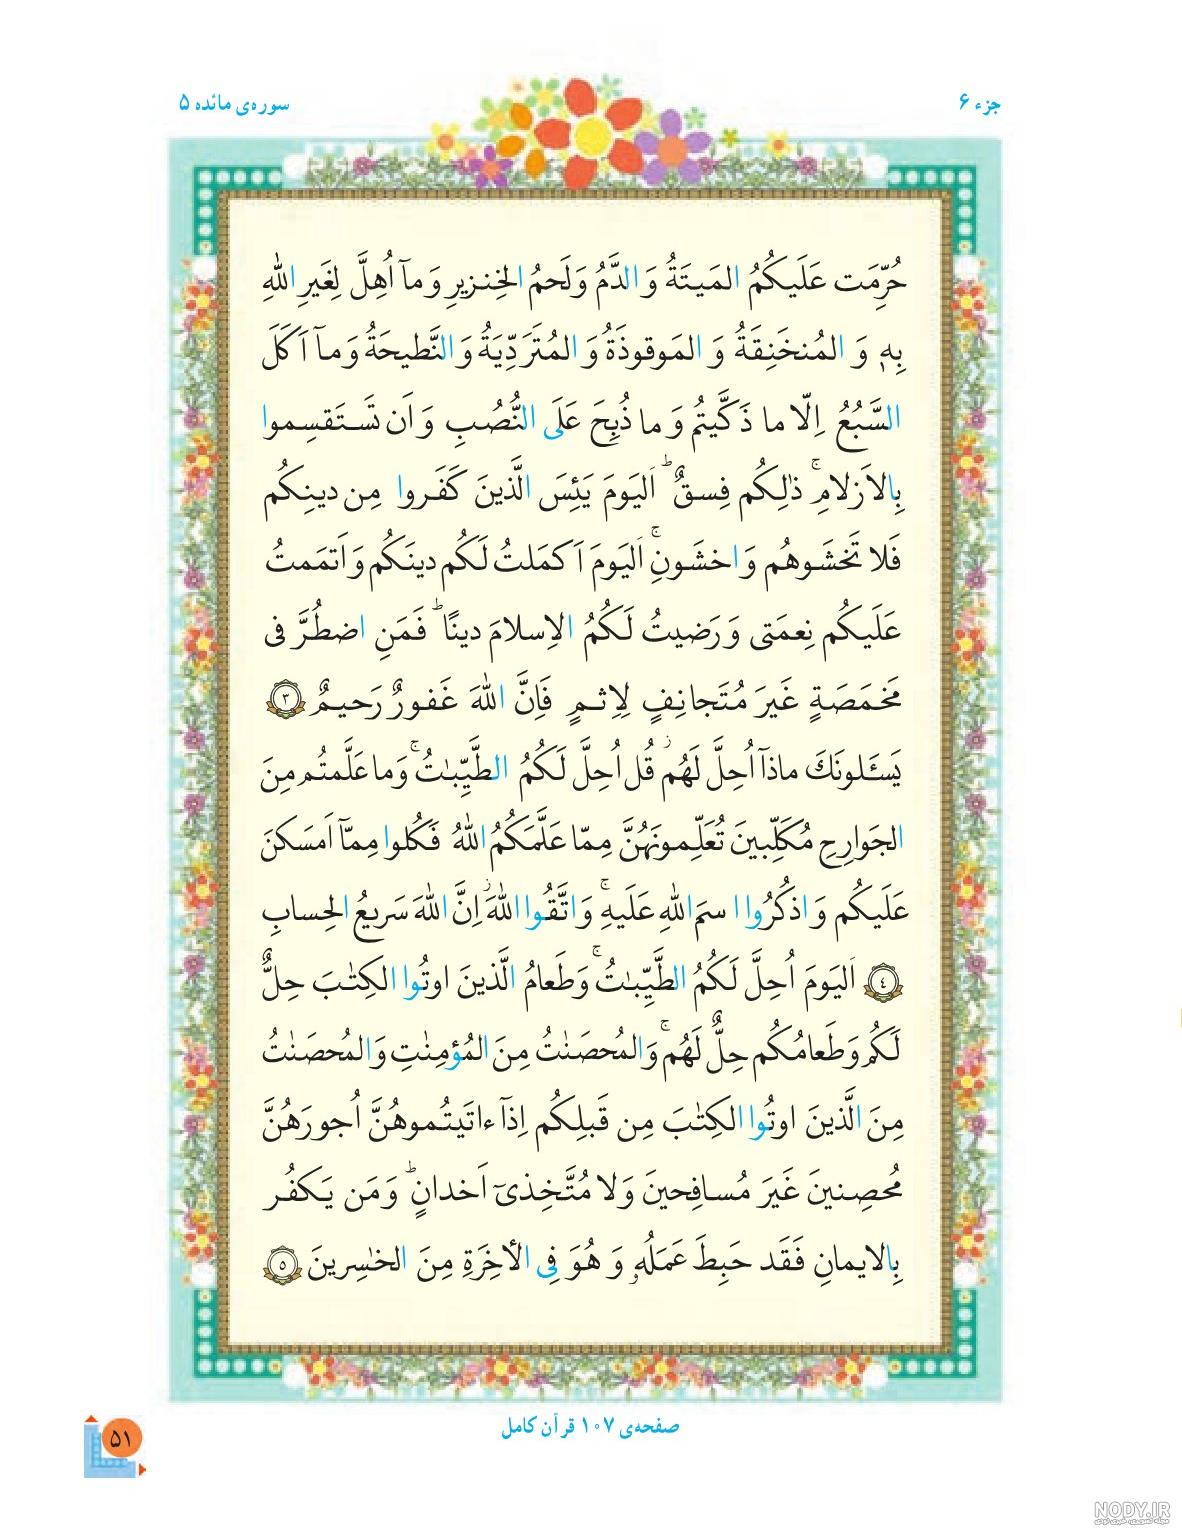 جزء ۶
سوره‌ی مائده ۵
حُرِّمَت عَلَيكُمُ المَيتَةُ وَ الدَّمُ وَ لَحمُ الخِنزيرِ وَ مآ اُهِلَّ لِغَيرِ اللهِ
بِهٖ وَ المُنخَنِقَةُ وَ المَوقوذَةُ وَ المُتَرَدِّيَةُ وَ النَّطيحَةُ وَ مآ اَكَلَ
السَّبُعُ اِلّا ما ذَكَّيتُم وَ ما ذُبِحَ عَلَى النُّصُبِ وَ اَن تَستَقسِموا
بِالاَزلامِ ۚ ذٰلِكُم فِسقٌ ۗ اَليَومَ يَئِسَ الَّذينَ كَفَروا مِن دينِكُم
فَلا تَخشَوهُم وَ اخشَونِ ۚ اَليَومَ اَكمَلتُ لَكُم دينَكُم وَ اَتمَمتُ
عَلَيكُم نِعمَتى وَ رَضيتُ لَكُمُ الاِسلامَ دينًا ۗ فَمَنِ اضطُرَّ فى
مَخمَصَةٍ غَيرَ مُتَجانِفٍ لِاِثمٍ فَاِنَّ اللهَ غَفورٌ رَحيمٌ ٣
يَسـَٔلونَكَ ماذآ اُحِلَّ لَهُم ۖ قُل اُحِلَّ لَكُمُ الطَّيِّبٰتُ ۚ وَ ما عَلَّمتُم مِنَ
الجَوارِحِ مُكَلِّبينَ تُعَلِّمونَهُنَّ مِمّا عَلَّمَكُمُ اللهُ فَكُلوا مِمّآ اَمسَكنَ
عَلَيكُم وَ اذكُرُوا اسمَ اللهِ عَلَيهِ ۚ وَ اتَّقُوا اللهَ ۚ اِنَّ اللهَ سَريعُ الحِسابِ
٤ اَليَومَ اُحِلَّ لَكُمُ الطَّيِّبٰتُ ۚ وَ طَعامُ الَّذينَ اوتُوا الكِتٰبَ حِلٌّ
لَكُم وَ طَعامُكُم حِلٌّ لَهُم ۚ وَ المُحصَنٰتُ مِنَ المُؤمِنٰتِ وَ المُحصَنٰتُ
مِنَ الَّذينَ اوتُوا الكِتٰبَ مِن قَبلِكُم اِذآ ءاتَيتُموهُنَّ اُجورَهُنَّ
مُحصِنينَ غَيرَ مُسافِحينَ وَ لا مُتَّخِذىٓ اَخدانٍ ۗ وَ مَن يَكفُر
بِالايمانِ فَقَد حَبِطَ عَمَلُهٗ وَ هُوَ فِى الأخِرَةِ مِنَ الخٰسِرينَ ٥
صفحه‌ی ۱۰۷ قرآن کامل
۵۱
NODY.IR